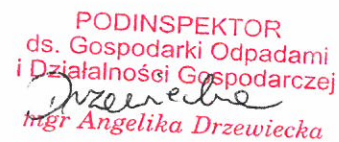 PODINSPEKTOR
ds. Gospodarki Odpadami
i Działalności Gospodarczej
Drzewiecka
mgr Angelika Drzewiecka